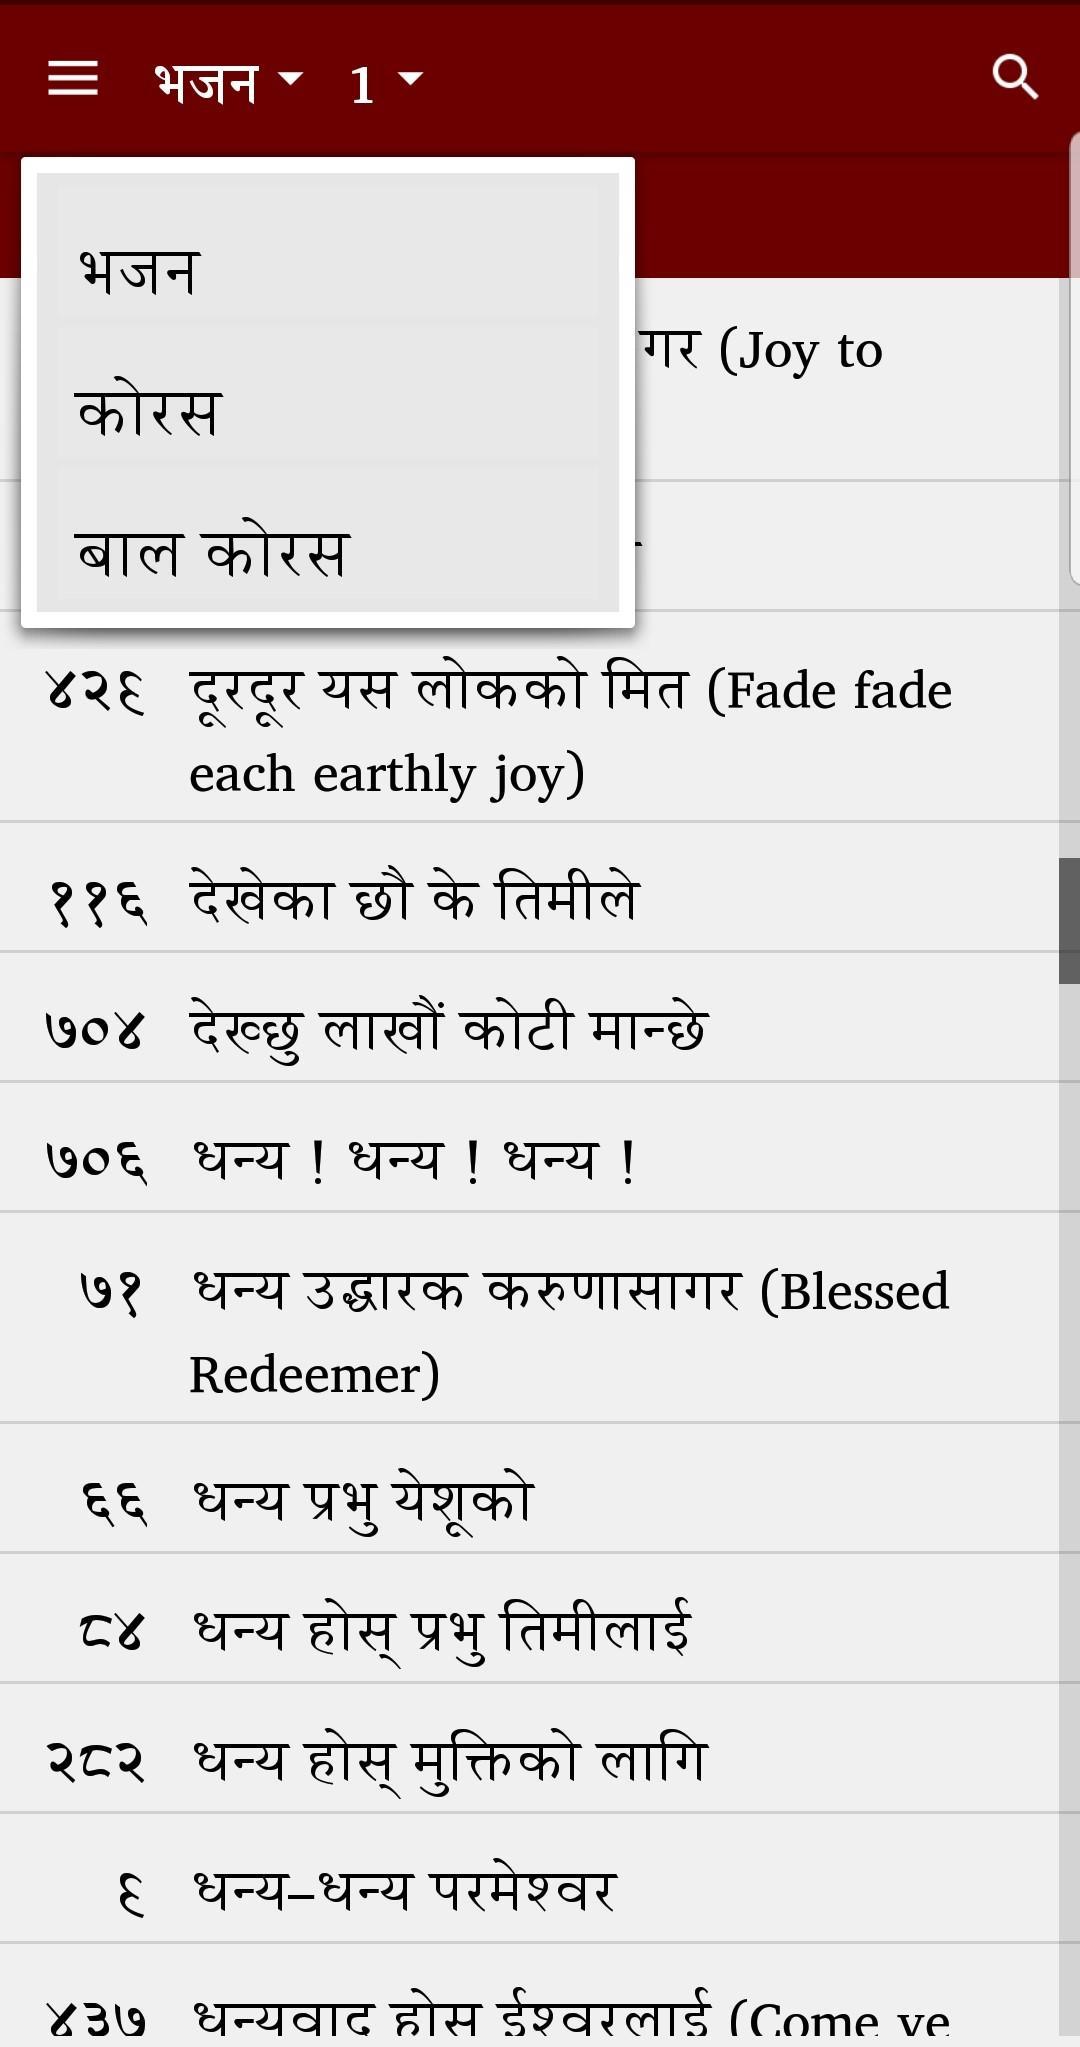 भजन 1
भजन
कोरस
बाल कोरस
गर (Joy to
४२९ दूरदूर यस लोकको मित (Fade fade
each earthly joy)
११६ देखेका छौ के तिमीले
७०४ देख्छु लाखौं कोटी मान्छे
७०६ धन्य ! धन्य ! धन्य !
७१ धन्य उद्धारक करुणासागर (Blessed
Redeemer)
६६ धन्य प्रभु येशूको
८४ धन्य होस् प्रभु तिमीलाई
२८२ धन्य होस् मुक्तिको लागि
९ धन्य–धन्य परमेश्वर
४३७ धन्यवाद होस ईश्वरलाई (Come ye